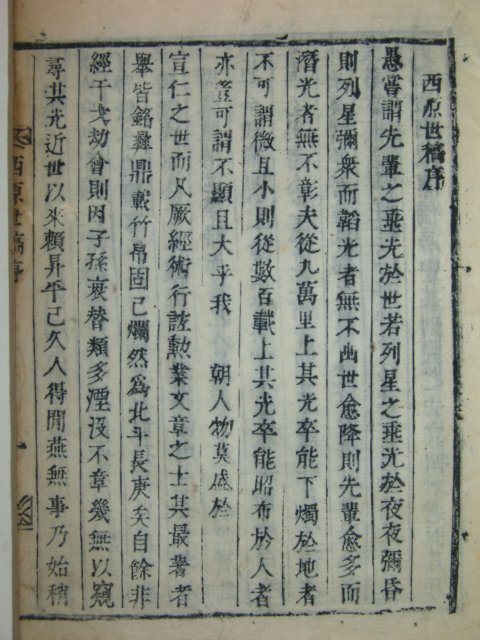 西原世稿序
愚嘗謂先輩之垂光於世若列星之垂光於夜夜彌昏
則列星彌衆而韜光者無不幽世愈降則先輩愈多而
潛光者無不彰夫從九萬里上其光卒能下燭於地者
不可謂微且小則從數百載上其光卒能昭布於人者
亦豈可謂不顯且大乎我　朝人物莫盛於
宣仁之世而凡厥經術行誼勳業文章之士其最著者
舉皆銘彝鼎載竹帛固已爛然爲北斗長庚矣自餘非
經干戈劫會則因子孫衰替類多湮沒不章幾無以窺
尋其光近世以來賴昇平已久人得閒燕無事乃始稍
西原世稿序